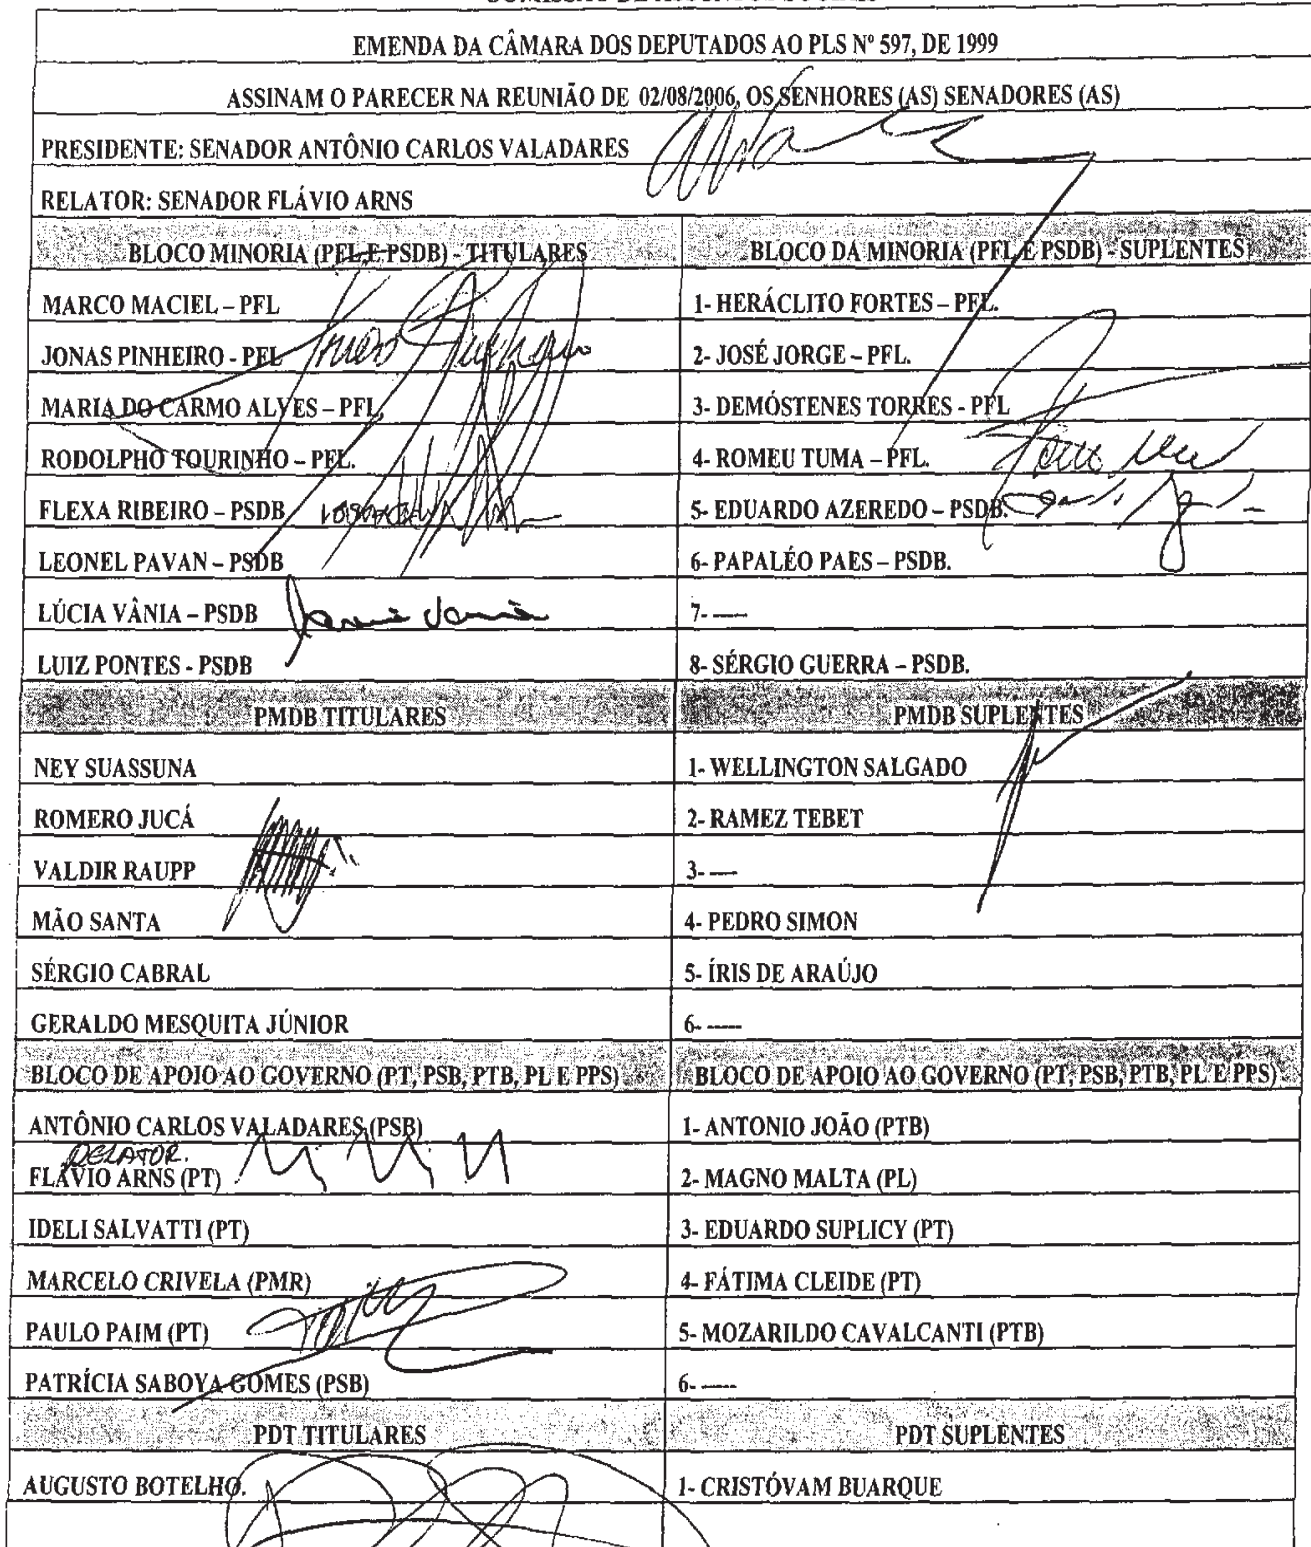 EMENDA DA CÂMARA DOS DEPUTADOS AO PLS Nº 597, DE 1999
ASSINAM O PARECER NA REUNIÃO DE 02/08/2006, OS SENHORES (AS) SENADORES (AS)
PRESIDENTE: SENADOR ANTÔNIO CARLOS VALADARES
RELATOR: SENADOR FLÁVIO ARNS
BLOCO MINORIA (PFL E PSDB) - TITULARES
BLOCO DA MINORIA (PFL E PSDB) - SUPLENTES
MARCO MACIEL – PFL
1- HERÁCLITO FORTES – PFL.
JONAS PINHEIRO - PFL
2- JOSÉ JORGE – PFL.
MARIA DO CARMO ALVES – PFL
3- DEMÓSTENES TORRES - PFL
RODOLPHO TOURINHO – PFL.
4- ROMEU TUMA – PFL.
FLEXA RIBEIRO – PSDB
5- EDUARDO AZEREDO – PSDB.
LEONEL PAVAN – PSDB
6- PAPALÉO PAES – PSDB.
LÚCIA VÂNIA – PSDB
7- ----
LUIZ PONTES - PSDB
8- SÉRGIO GUERRA – PSDB.
PMDB TITULARES
PMDB SUPLENTES
NEY SUASSUNA
1- WELLINGTON SALGADO
ROMERO JUCÁ
2- RAMEZ TEBET
VALDIR RAUPP
3- ----
MÃO SANTA
4- PEDRO SIMON
SÉRGIO CABRAL
5- ÍRIS DE ARAÚJO
GERALDO MESQUITA JÚNIOR
6- -----
BLOCO DE APOIO AO GOVERNO (PT, PSB, PTB, PL E PPS)
BLOCO DE APOIO AO GOVERNO (PT, PSB, PTB, PL E PPS)
ANTÔNIO CARLOS VALADARES (PSB)
1- ANTONIO JOÃO (PTB)
RELATOR.
FLÁVIO ARNS (PT)
2- MAGNO MALTA (PL)
IDELI SALVATTI (PT)
3- EDUARDO SUPLICY (PT)
MARCELO CRIVELA (PMR)
4- FÁTIMA CLEIDE (PT)
PAULO PAIM (PT)
5- MOZARILDO CAVALCANTI (PTB)
PATRÍCIA SABOYA GOMES (PSB)
6- -----
PDT TITULARES
PDT SUPLENTES
AUGUSTO BOTELHO.
1- CRISTÓVAM BUARQUE